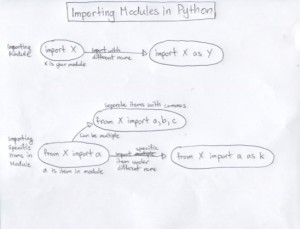 Importing Modules in Python
Importing
Module
import X
import with
different name
import X as Y
X is your module
separate items with commas
from X import a,b,c
can be multiple
Importing
Specific
Items in
Module
from X import a
specific
import multiple
item under
different name
from X import a as k
a is item in module